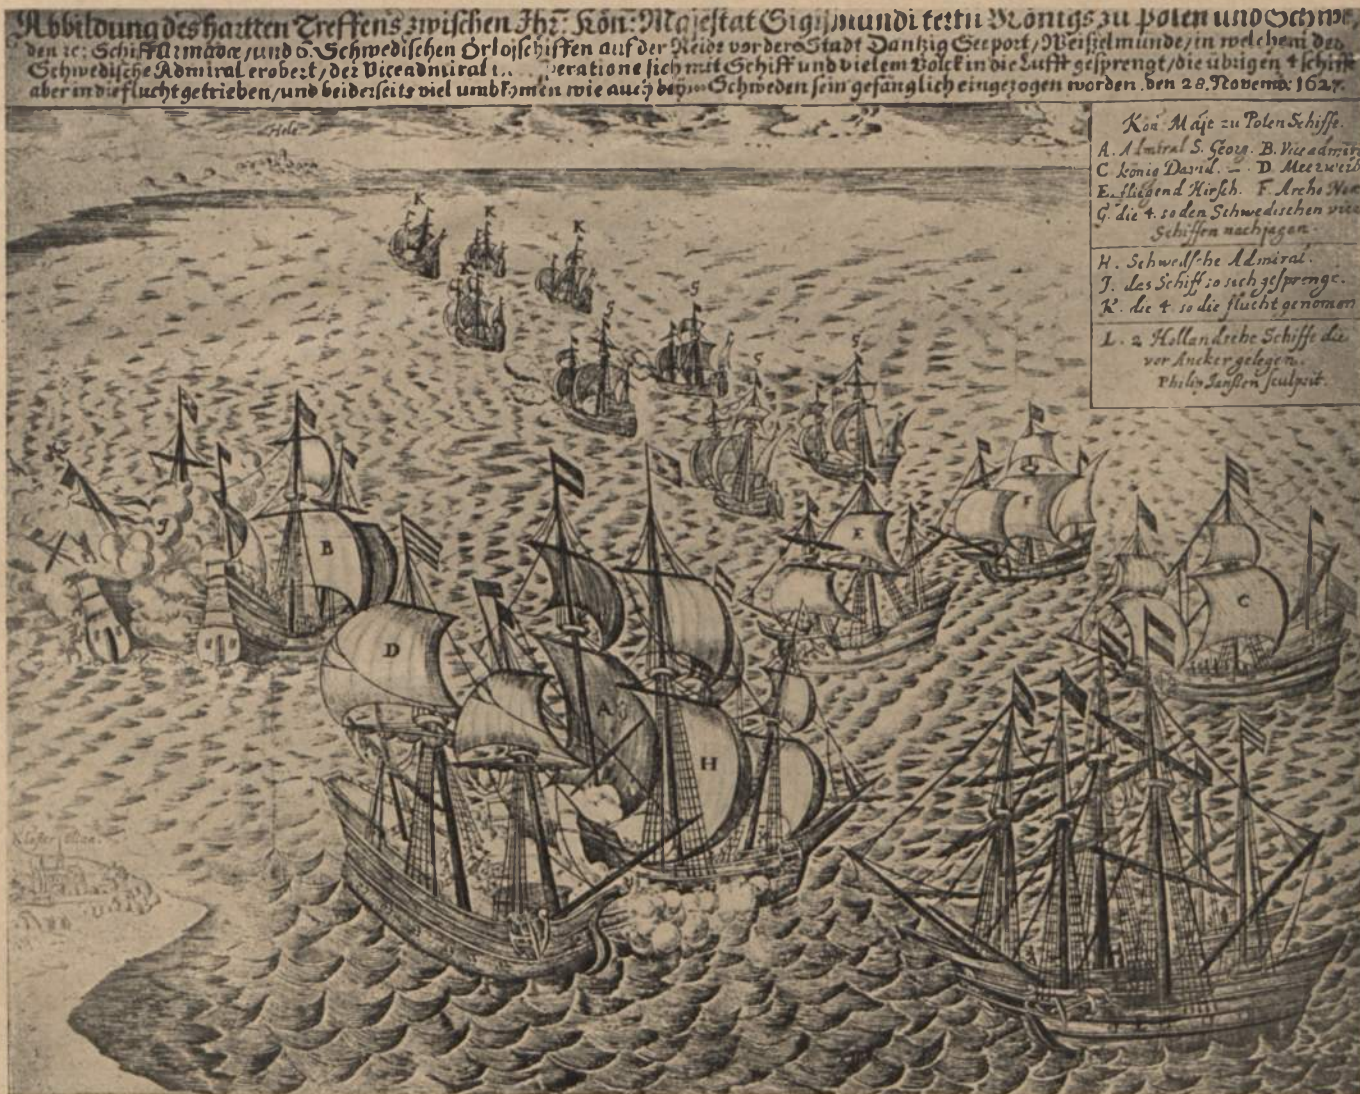 Abbildung des hartten Treffens zwischen Ihr: Kön: Majestat Sigismundi tertii Königs zu Polen und Schwe,
den ic: Schiff Armada, und 6. Schwedischen Orlojschiffen auf der Reide vor der Stadt Dantzig Seeport, Weisselmünde, in welchem der
Schwedische Admiral erobert, der Viceadmiral sich mit Schiff und vielem Volck in die Lufft gesprengt, die übrigen 4 schiffe
aber in die flucht getrieben, und beiderseits viel umbkommen wie auch Schweden sein gefänglich eingezogen worden. den 28. Novemb: 1627.
Hele
Kön Maje zu Polen Schiffe.
A. Admiral S. Georg. B. Viceadmira
C könig David. – D Meerweib
E. fliegend Hirsch. F. Arche Noe
G. die 4. so den Schwedischen vier
Schiffen nachjagen.
H. Schwedsche Admiral.
J. das Schiff so sich gesprenge.
K. die 4. so die flucht genomen
L. 2 Hollandsche Schiffe die
vor Ancker gelegen.
Philip Janssen sculpsit.
K
K
K
K
G
G
G
G
J
B
E
F
C
D
A
H
Kloster